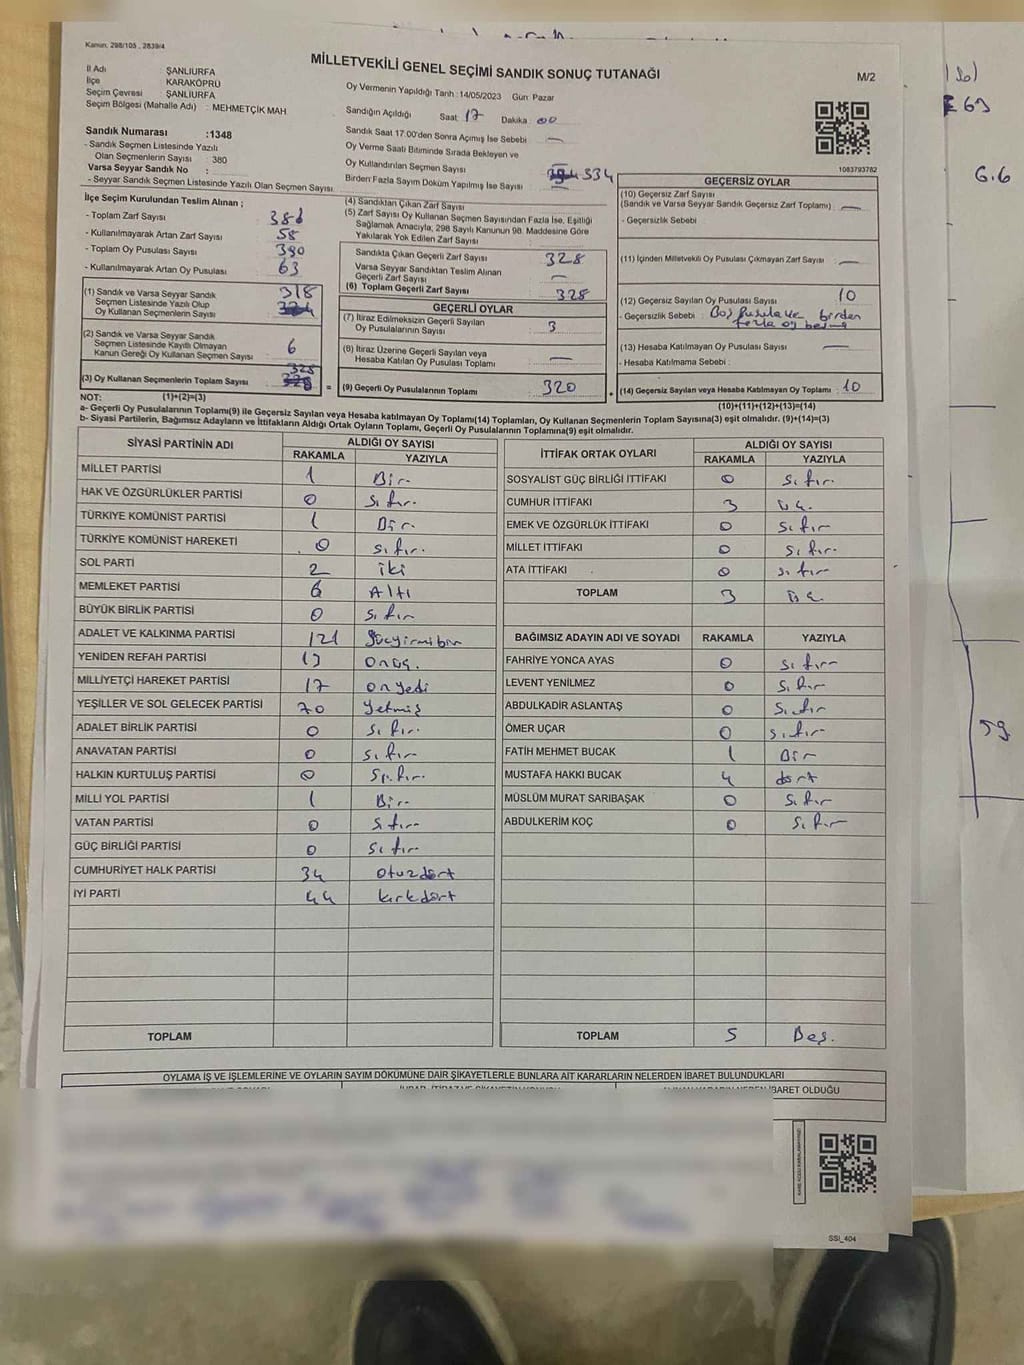 Kanun: 298/105 , 2839/4
MİLLETVEKİLİ GENEL SEÇİMİ SANDIK SONUÇ TUTANAĞI
M/2
İl Adı : ŞANLIURFA
İlçe KARAKÖPRÜ
Seçim Çevresi : ŞANLIURFA
Seçim Bölgesi (Mahalle Adı) : MEHMETÇİK MAH
Sandık Numarası :1348
- Sandık Seçmen Listesinde Yazılı
Olan Seçmenlerin Sayısı : 380
Varsa Seyyar Sandık No :
- Seyyar Sandık Seçmen Listesinde Yazılı Olan Seçmen Sayısı
Oy Vermenin Yapıldığı Tarih :14/05/2023 Gün: Pazar
Sandığın Açıldığı Saat: 17 Dakika : 00
Sandık Saat 17:00'den Sonra Açımış İse Sebebi —
Oy Verme Saati Bitiminde Sırada Bekleyen ve
Oy Kullandırılan Seçmen Sayısı
Birden Fazla Sayım Döküm Yapılmış İse Sayısı
334
1083793782
İlçe Seçim Kurulundan Teslim Alınan ;
- Toplam Zarf Sayısı
- Kullanılmayarak Artan Zarf Sayısı 58
- Toplam Oy Pusulası Sayısı 380
- Kullanılmayarak Artan Oy Pusulası 63
(1) Sandık ve Varsa Seyyar Sandık
Seçmen Listesinde Yazılı Olup
Oy Kullanan Seçmenlerin Sayısı
318
(2) Sandık ve Varsa Seyyar Sandık
Seçmen Listesinde Kayıtlı Olmayan
Kanun Gereği Oy Kullanan Seçmen Sayısı : 6
(3) Oy Kullanan Seçmenlerin Toplam Sayısı
(4) Sandıktan Çıkan Zarf Sayısı
(5) Zarf Sayısı Oy Kullanan Seçmen Sayısından Fazla İse, Eşitliği
Sağlamak Amacıyla, 298 Sayılı Kanunun 98. Maddesine Göre
Yakılarak Yok Edilen Zarf Sayısı :
Sandıkta Çıkan Geçerli Zarf Sayısı 328
Varsa Seyyar Sandıktan Teslim Alınan
Geçerli Zarf Sayısı —
(6) Toplam Geçerli Zarf Sayısı : 328
GEÇERLİ OYLAR
(7) İtiraz Edilmeksizin Geçerli Sayılan
Oy Pusulalarının Sayısı : 3
(8) İtiraz Üzerine Geçerli Sayılan veya
Hesaba Katılan Oy Pusulası Toplamı —
= (9) Geçerli Oy Pusulalarının Toplamı 320
GEÇERSİZ OYLAR
(10) Geçersiz Zarf Sayısı
(Sandık ve Varsa Seyyar Sandık Geçersiz Zarf Toplamı) : —
- Geçersizlik Sebebi
(11) İçinden Milletvekili Oy Pusulası Çıkmayan Zarf Sayısı —
(12) Geçersiz Sayılan Oy Pusulası Sayısı 10
- Geçersizlik Sebebi : Boş pusula ve birden
fazla oy
(13) Hesaba Katılmayan Oy Pusulası Sayısı —
- Hesaba Katılmama Sebebi :
(14) Geçersiz Sayılan veya Hesaba Katılmayan Oy Toplamı : 10
NOT: (1)+(2)=(3)
(10)+(11)+(12)+(13)=(14)
a- Geçerli Oy Pusulalarının Toplamı(9) ile Geçersiz Sayılan veya Hesaba katılmayan Oy Toplamı(14) Toplamları, Oy Kullanan Seçmenlerin Toplam Sayısına(3) eşit olmalıdır. (9)+(14)=(3)
b- Siyasi Partilerin, Bağımsız Adayların ve İttifakların Aldığı Ortak Oyların Toplamı, Geçerli Oy Pusulalarının Toplamına(9) eşit olmalıdır.
SİYASİ PARTİNİN ADI ALDIĞI OY SAYISI
RAKAMLA YAZIYLA
MİLLET PARTİSİ 1 Bir
HAK VE ÖZGÜRLÜKLER PARTİSİ 0 Sıfır.
TÜRKİYE KOMÜNİST PARTİSİ 1 Bir.
TÜRKİYE KOMÜNİST HAREKETİ 0 sıfır.
SOL PARTİ 2 iki
MEMLEKET PARTİSİ 6 Altı
BÜYÜK BİRLİK PARTİSİ 0 Sıfır
ADALET VE KALKINMA PARTİSİ 121 yüzyirmibir
YENİDEN REFAH PARTİSİ 13 onüç.
MİLLİYETÇİ HAREKET PARTİSİ 17 onyedi
YEŞİLLER VE SOL GELECEK PARTİSİ 70 yetmiş
ADALET BİRLİK PARTİSİ 0 Sıfır.
ANAVATAN PARTİSİ 0 sıfır
HALKIN KURTULUŞ PARTİSİ 0 Sıfır.
MİLLİ YOL PARTİSİ 1 Bir
VATAN PARTİSİ 0 Sıfır
GÜÇ BİRLİĞİ PARTİSİ 0 Sıfır
CUMHURİYET HALK PARTİSİ 34 otuzdört
İYİ PARTİ 44 kırkdört
TOPLAM
İTTİFAK ORTAK OYLARI ALDIĞI OY SAYISI
RAKAMLA YAZIYLA
SOSYALİST GÜÇ BİRLİĞİ İTTİFAKI 0 Sıfır.
CUMHUR İTTİFAKI 3 üç.
EMEK VE ÖZGÜRLÜK İTTİFAKI 0 Sıfır
MİLLET İTTİFAKI 0 Sıfır
ATA İTTİFAKI 0 sıfır
TOPLAM 3 üç.
BAĞIMSIZ ADAYIN ADI VE SOYADI RAKAMLA YAZIYLA
FAHRİYE YONCA AYAS 0 sıfır
LEVENT YENİLMEZ 0 Sıfır
ABDULKADİR ASLANTAŞ 0 Sıfır
ÖMER UÇAR 0 sıfır
FATİH MEHMET BUCAK 1 Bir
MUSTAFA HAKKI BUCAK 4 dört
MÜSLÜM MURAT SARIBAŞAK 0 Sıfır
ABDULKERİM KOÇ 0 Sıfır
TOPLAM 5 Beş.
OYLAMA İŞ VE İŞLEMLERİNE VE OYLARIN SAYIM DÖKÜMÜNE DAİR ŞİKAYETLERLE BUNLARA AİT KARARLARIN NELERDEN İBARET BULUNDUKLARI
İBARET OLDUĞU
SSİ_404
63
6.6
59